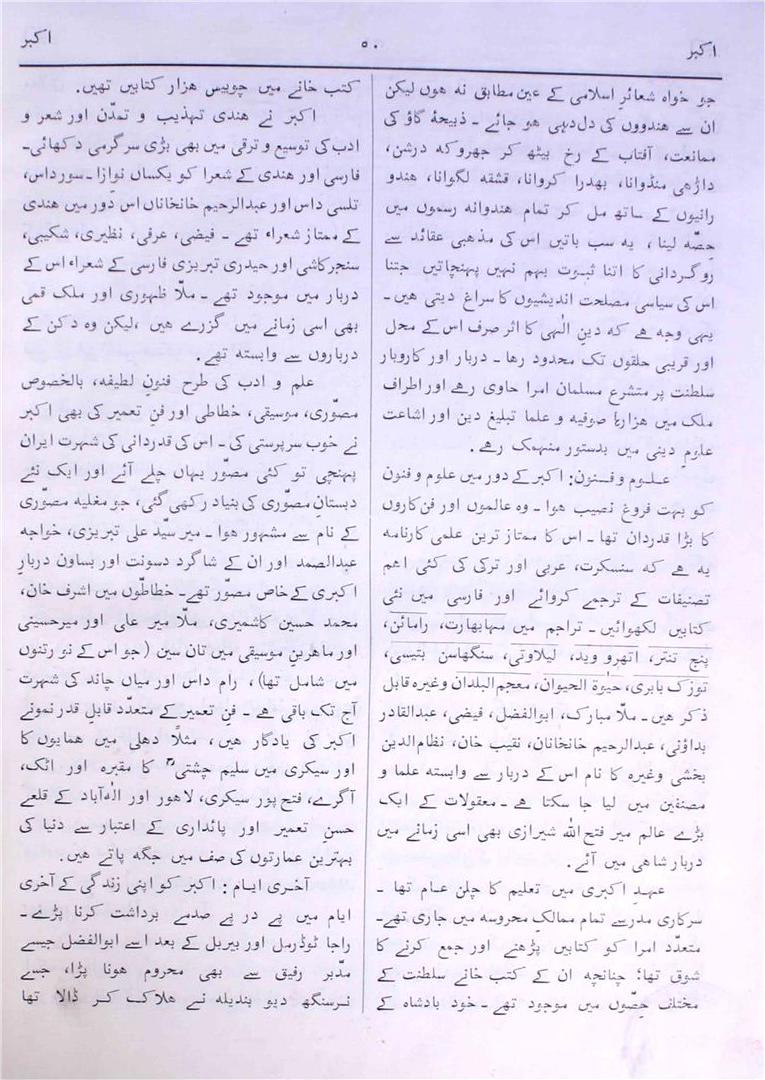 اکبر
۵۰
اکبر
جو خواہ شعائرِ اسلامی کے عین مطابق نہ ھوں لیکن
ان سے ھندووں کی دل‌دہی ھو جائے ۔ ذبیحۂ گاؤ کی
ممانعت، آفتاب کے رخ بیٹھ کر جھروکہ درشن،
داڑھی منڈوانا، بھدرا کروانا، قشقہ لگوانا، ھندو
رانیوں کے ساتھ مل کر تمام ھندوانہ رسموں میں
حِصّہ لینا، یہ سب باتیں اس کی مذھبی عقائد سے
روگردانی کا اتنا ثبوت بہم نہیں پہنچاتیں جتنا
اس کی سیاسی مصلحت اندیشیوں کا سراغ دیتی ھیں ۔
یہی وجہ ھے کہ دینِ الٰہی کا اثر صرف اس کے محل
اور قریبی حلقوں تک محدود رھا ۔ دربار اور کاروبارِ
سلطنت پر متشرع مسلمان امرا حاوی رھے اور اطراف
ملک میں ھزارہا صوفیہ و علما تبلیغ دین اور اشاعت
علومِ دینی میں بدستور منہمک رھے .
علوم و فنون: اکبر کے دور میں علوم و فنون
کو بہت فروغ نصیب ھوا ۔ وہ عالموں اور فن‌کاروں
کا بڑا قدردان تھا ۔ اس کا ممتاز ترین علمی کارنامہ
یہ ھے کہ سنسکرت، عربی اور ترکی کی کئی اھم
تصنیفات کے ترجمے کروائے اور فارسی میں نئی
کتابیں لکھوائیں ۔ تراجم میں مہابھارت، رامائن،
پنج تنتر، اتھرو وید، لیلاوتی، سنگھاسن بتیسی،
توزک بابری، حیٰوۃ الحیوان، معجم البلدان وغیرہ قابل
ذکر ھیں ۔ ملّا مبارک، ابوالفضل، فیضی، عبدالقادر
بداؤنی، عبدالرحیم خانخانان، نقیب خان، نظام‌الدین
بخشی وغیرہ کا نام اس کے دربار سے وابستہ علما و
مصنفین میں لیا جا سکتا ھے ۔ معقولات کے ایک
بڑے عالم میر فتح اللہ شیرازی بھی اسی زمانے میں
دربار شاھی میں آئے.
عہدِ اکبری میں تعلیم کا چلن عام تھا ۔
سرکاری مدرسے تمام ممالکِ محروسہ میں جاری تھے۔
متعدّد امرا کو کتابیں پڑھنے اور جمع کرنے کا
شوق تھا؛ چنانچہ ان کے کتب خانے سلطنت کے
مختلف حِصّوں میں موجود تھے ۔ خود بادشاہ کے
کتب خانے میں چوبیس ھزار کتابیں تھیں.
اکبر نے ھندی تہذیب و تمدّن اور شعر و
ادب کی توسیع و ترقی میں بھی بڑی سرگرمی دکھائی۔
فارسی اور ھندی کے شعرا کو یکساں نوازا ۔ سورداس،
تلسی داس اور عبدالرحیم خانخاناں اس دور میں ھندی
کے ممتاز شعراء تھے ۔ فیضی، عرفی، نظیری، شکیبی،
سنجرکاشی اور حیدری تبریزی فارسی کے شعراء اس کے
دربار میں موجود تھے ۔ ملّا ظہوری اور ملک قمی
بھی اسی زمانے میں گزرے ھیں ،لیکن وہ دکن کے
درباروں سے وابستہ تھے.
علم و ادب کی طرح فنونِ لطیفہ، بالخصوص
مصوّری، موسیقی، خطاطی اور فنِ تعمیر کی بھی اکبر
نے خوب سرپرستی کی ۔ اس کی قدردانی کی شہرت ایران
پہنچی تو کئی مصوّر یہاں چلے آئے اور ایک نئے
دبستانِ مصوّری کی بنیاد رکھی گئی، جو مغلیہ مصوّری
کے نام سے مشہور ھوا ۔ میر سیّد علی تبریزی، خواجہ
عبدالصمد اور ان کے شاگرد دسونت اور بساون دربارِ
اکبری کے خاص مصوّر تھے۔ خطاطّوں میں اشرف خان،
محمد حسین کاشمیری، ملّا میر علی اور میرحسینی
اور ماھرینِ موسیقی میں تان سین (جو اس کے نو رتنوں
میں شامل تھا)، رام داس اور میاں چاند کی شہرت
آج تک باقی ھے ۔ فنِ تعمیر کے متعدّد قابلِ قدر نمونے
اکبر کی یادگار ھیں، مثلًا دھلی میں ھمایوں کا
اور سیکری میں سلیم چشتیؒ کا مقبرہ اور اٹک،
آگرے، فتح پور سیکری، لاھور اور الٰہ آباد کے قلعے
حسن تعمیر اور پائداری کے اعتبار سے دنیا کی
بہترین عمارتوں کی صف میں جگہ پاتے ھیں.
آخری ایام : اکبر کو اپنی زندگی کے آخری
ایام میں پے در پے صدمے برداشت کرنا پڑے ۔
راجا ٹوڈرمل اور بیربل کے بعد اسے ابوالفضل جیسے
مدّبر رفیق سے بھی محروم ھونا پڑا، جسے
نرسنگھ دیو بندیلہ نے ھلاک کر ڈالا تھا